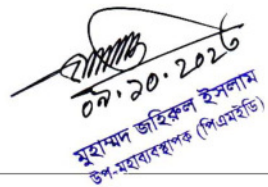 ০৯.১০.২০২৩
মুহাম্মদ জহিরুল ইসলাম
উপ-মহাব্যবস্থাপক (পিএমইডি)